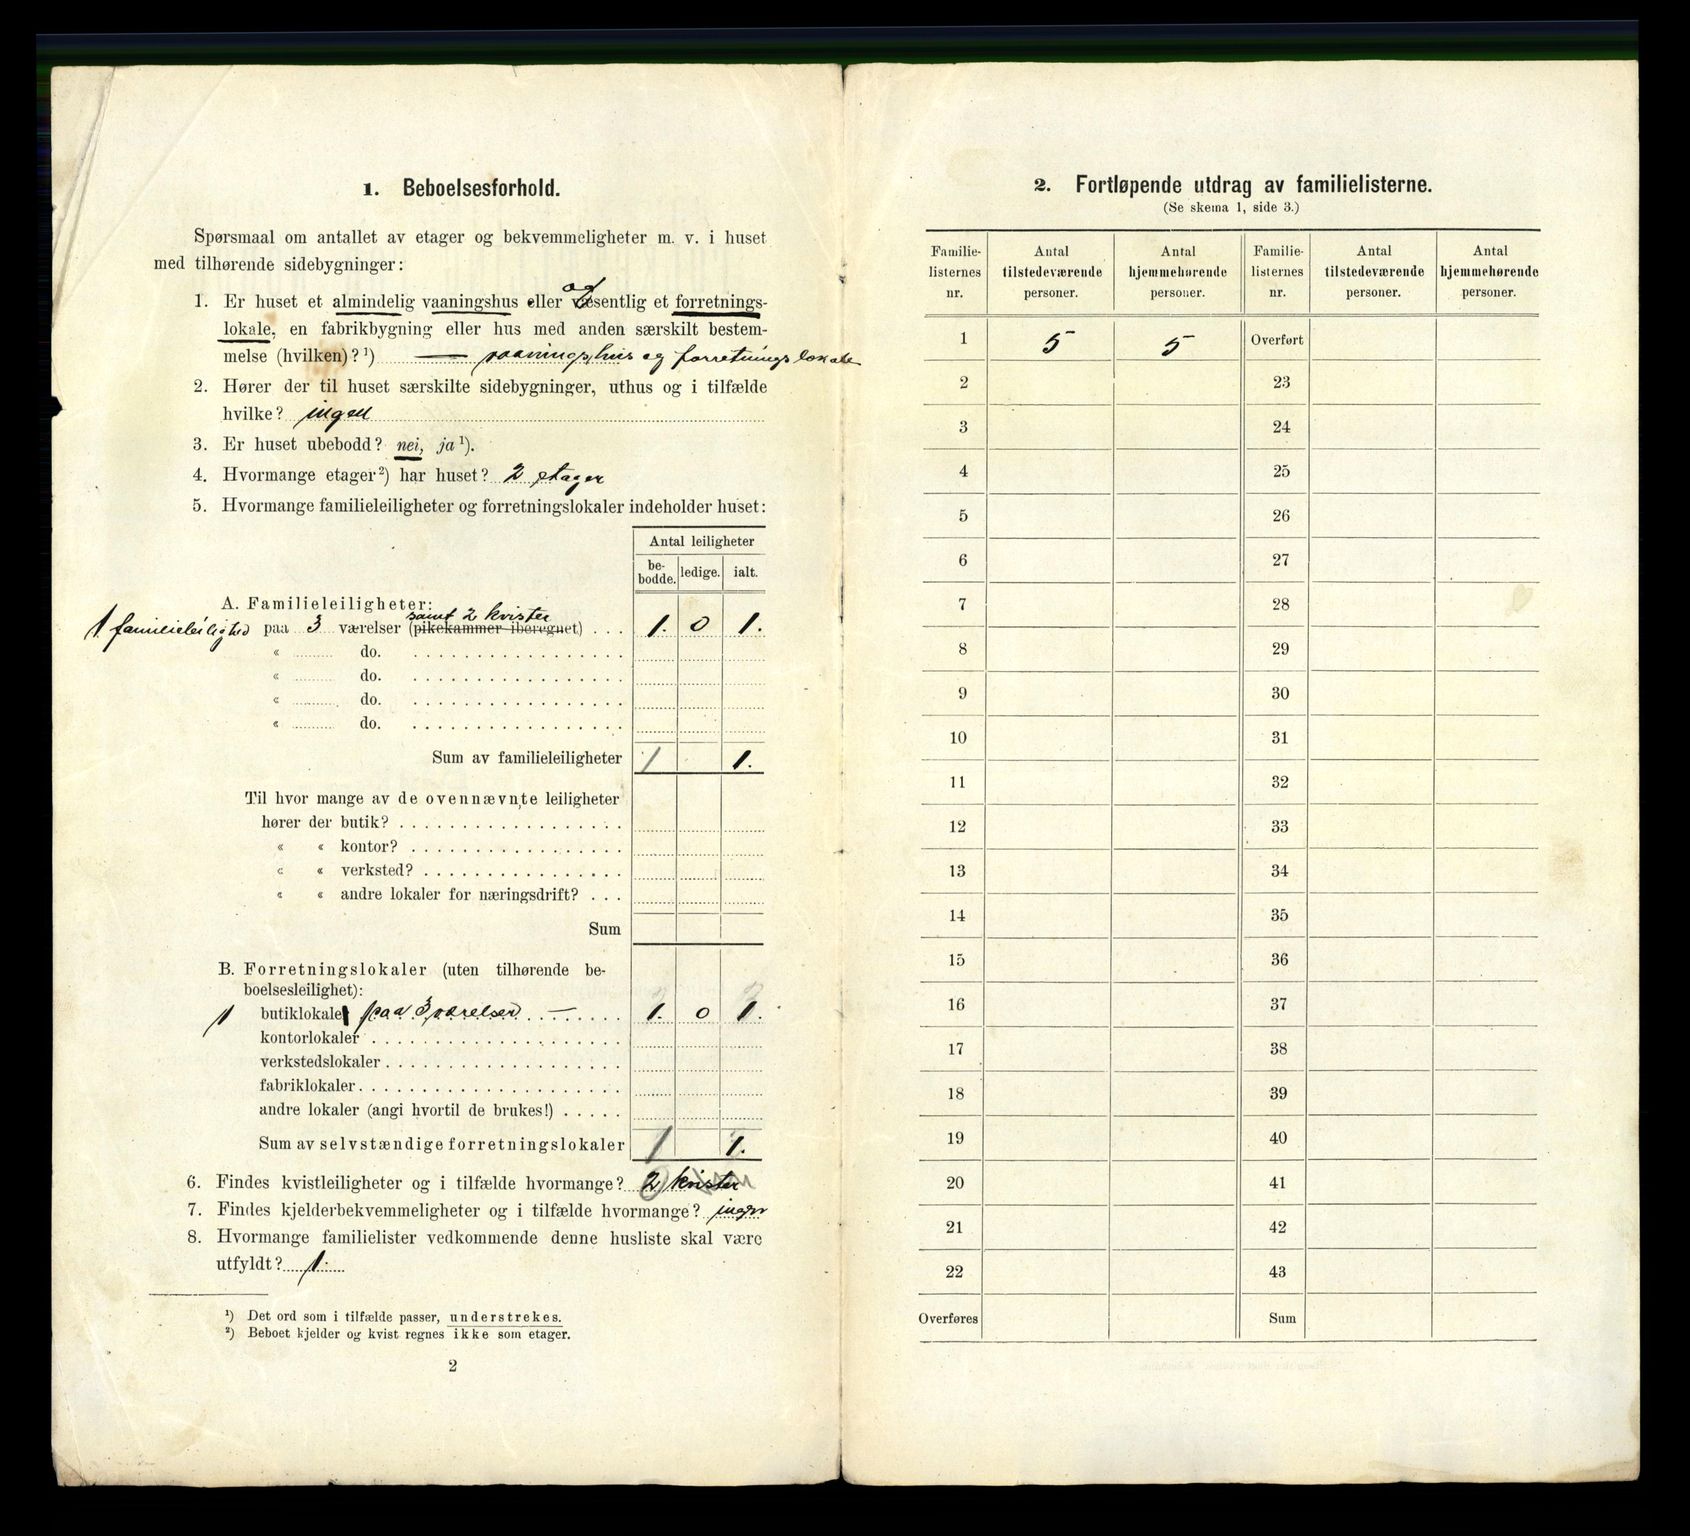 1. Beboelsesforhold.
Spørsmaal om antallet av etager og bekvemmeligheter m. v. i huset
med tilhørende sidebygninger:
og
1. Er huset et almindelig vaaningshus eller væsentlig et forretnings-
lokale, en fabrikbygning eller hus med anden særskilt bestem-
melse (hvilken)? ¹) — vaaningshus og forretningslokale
2. Hører der til huset særskilte sidebygninger, uthus og i tilfælde
hvilke? ingen
3. Er huset ubebodd? nei, ja ¹).
4. Hvormange etager ²) har huset? 2 etager
5. Hvormange familieleiligheter og forretningslokaler indeholder huset:
Antal leiligheter
be-
bodde. ledige. ialt.
A. Familieleiligheter:
samt 2 kvister
1 familieleilighed paa 3 værelser (pikekammer iberegnet) . . . 1. 0 1.
« ........ do. . . . . . . . . . . . . . . . . . .
« ........ do. . . . . . . . . . . . . . . . . . .
« ........ do. . . . . . . . . . . . . . . . . . .
« ........ do. . . . . . . . . . . . . . . . . . .
Sum av familieleiligheter 1 1.
Til hvor mange av de ovennævnte leiligheter
hører der butik? . . . . . . . . . . . . . . . . . .
« « kontor? . . . . . . . . . . . . . . . . . .
« « verksted? . . . . . . . . . . . . . . . . .
« « andre lokaler for næringsdrift? . . .
Sum
B. Forretningslokaler (uten tilhørende be-
boelsesleilighet):
1 butiklokale paa 3 værelser — . . . . . 1. 0 1.
kontorlokaler . . . . . . . . . . . . . . . . . . . .
verkstedslokaler . . . . . . . . . . . . . . . . . .
fabriklokaler . . . . . . . . . . . . . . . . . . . .
andre lokaler (angi hvortil de brukes!) . . . . .
Sum av selvstændige forretningslokaler 1 1.
6. Findes kvistleiligheter og i tilfælde hvormange? 2 kvister
7. Findes kjelderbekvemmeligheter og i tilfælde hvormange? ingen
8. Hvormange familielister vedkommende denne husliste skal være
utfyldt? 1.
¹) Det ord som i tilfælde passer, understrekes.
²) Beboet kjelder og kvist regnes ikke som etager.
2
2. Fortløpende utdrag av familielisterne.
(Se skema 1, side 3.)
Familie- Antal Antal Familie- Antal Antal
listernes tilstedeværende hjemmehørende listernes tilstedeværende hjemmehørende
nr. personer. personer. nr. personer. personer.
1 5 5 Overført
2 23
3 24
4 25
5 26
6 27
7 28
8 29
9 30
10 31
11 32
12 33
13 34
14 35
15 36
16 37
17 38
18 39
19 40
20 41
21 42
22 43
Overføres Sum